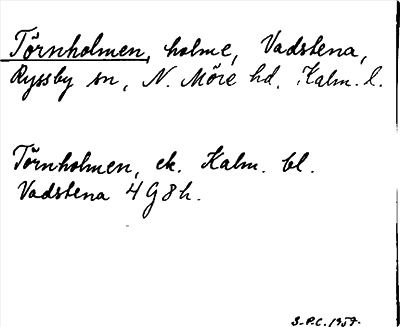 Törnholmen, holme, Vadstena,
Ryssby sn, N. Möre hd. Kalm. l.
Törnholmen, ek. Kalm. bl.
Vadstena 4 G 8 h.
S-P.C. 1959.